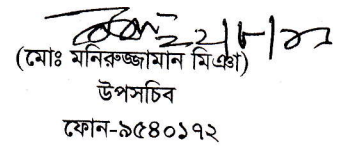 ২২/৮/১৯
(মোঃ মনিরুজ্জামান মিঞা)
উপসচিব
ফোন-৯৫৪০১৭২